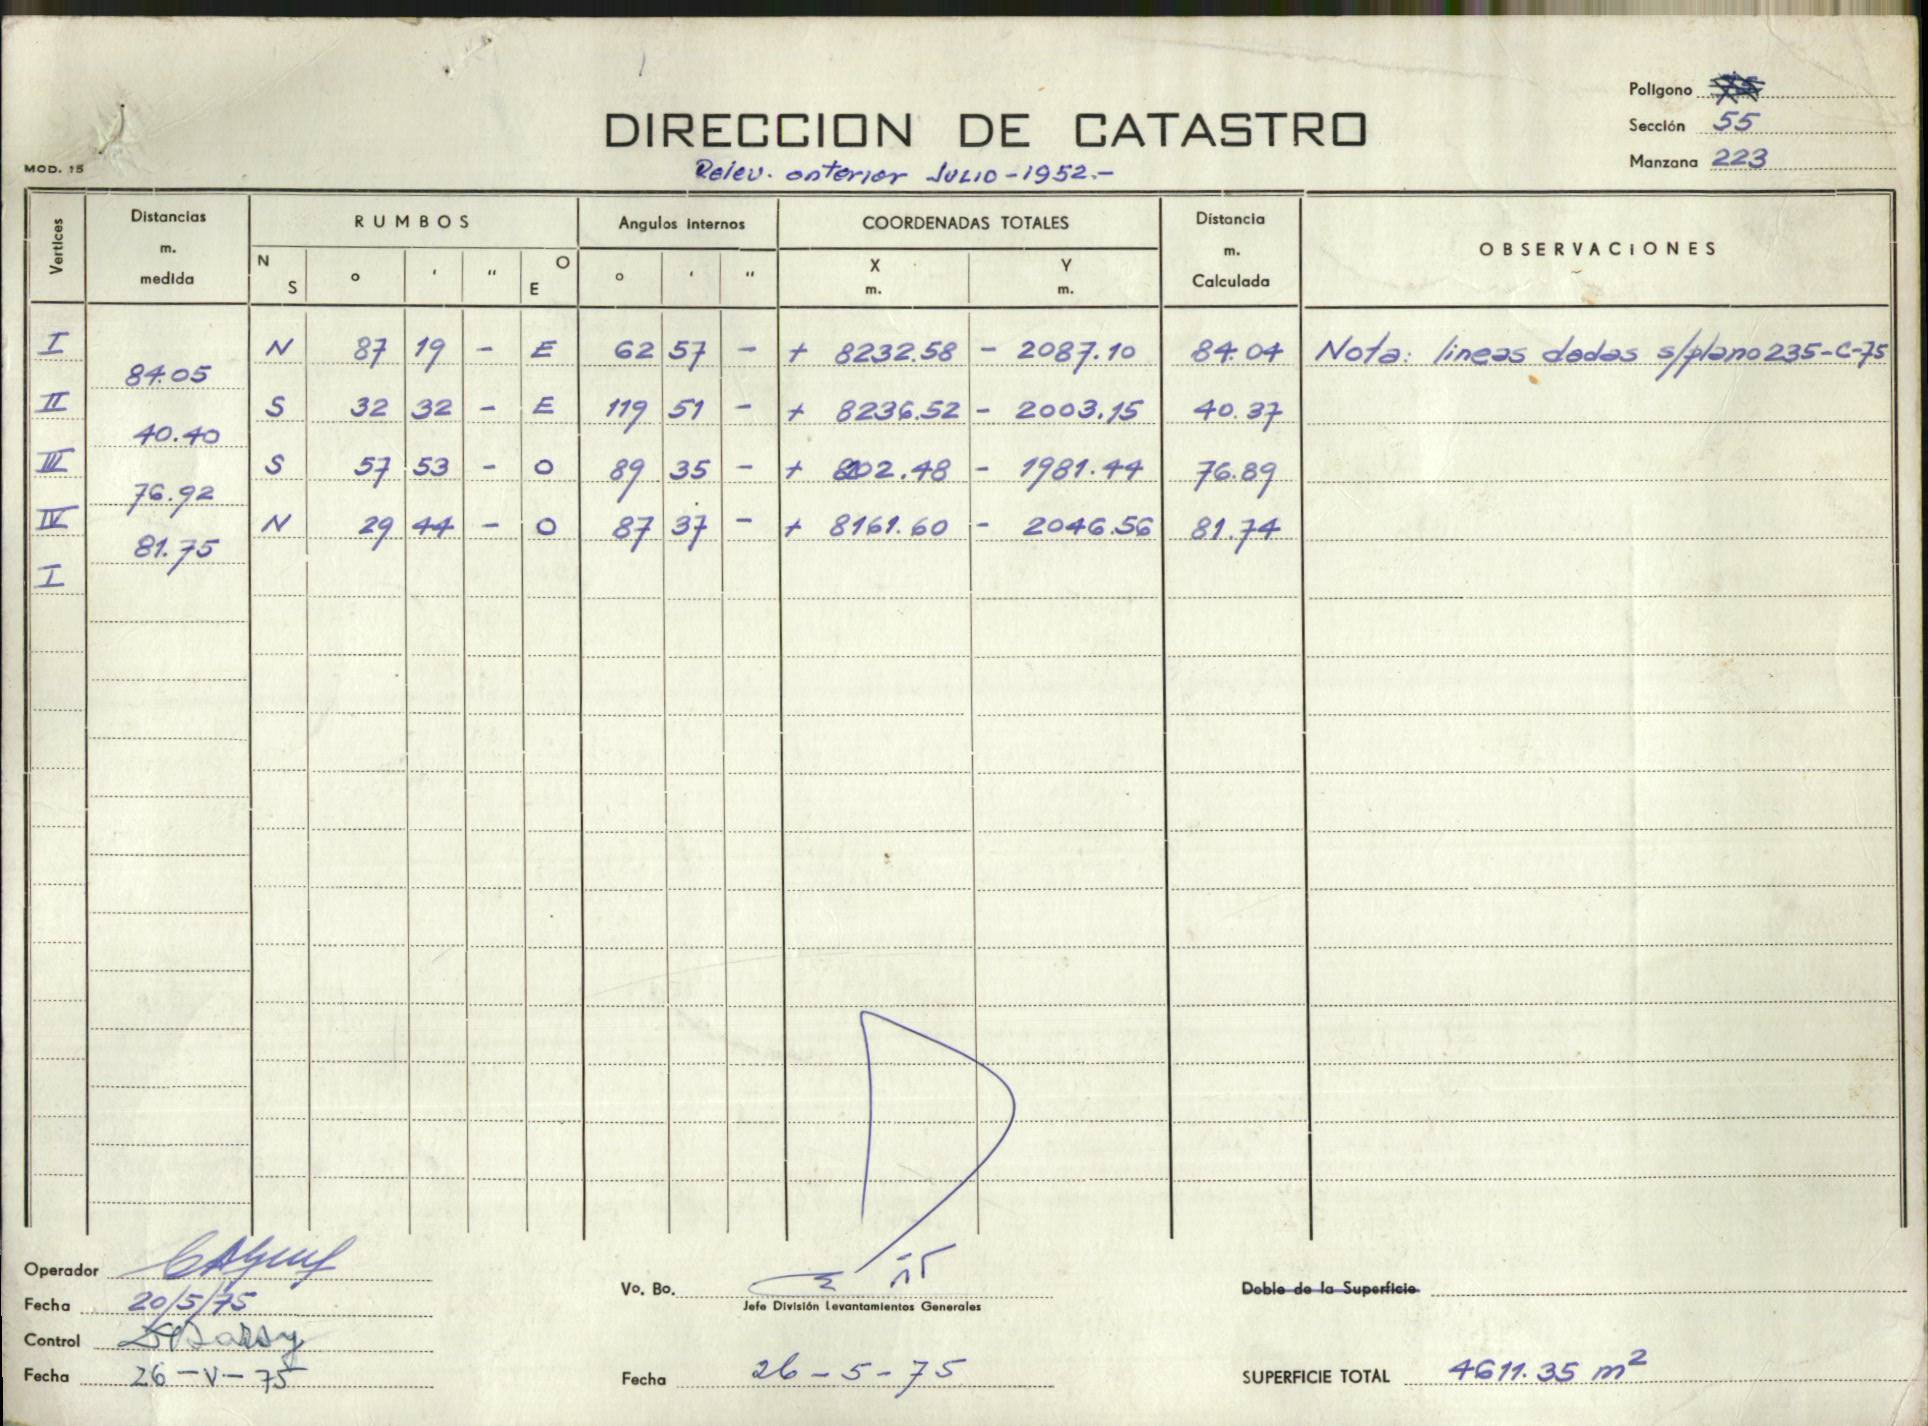 Polígono
DIRECCION DE CATASTRO
Sección 55
MOD. 15
Relev. anterior JULIO-1952.-
Manzana 223
Vertices Distancias m. medida RUMBOS Angulos internos COORDENADAS TOTALES Distancia m. Calculada OBSERVACIONES
N S ° ' " O E ° ' " X m. Y m.
I N 87 19 - E 62 57 - + 8232.58 - 2087.10 84.04 Nota: lineas dadas s/plano 235-C-75
84.05
II S 32 32 - E 119 51 - + 8236.52 - 2003.15 40.37
40.40
III S 57 53 - O 89 35 - + 8202.48 - 1981.44 76.89
76.92
IV N 29 44 - O 87 37 - + 8161.60 - 2046.56 81.74
81.75
I
Operador
Fecha 20/5/75
Control
Fecha 26-V-75
Vo. Bo.
Jefe División Levantamientos Generales
Fecha 26-5-75
Doble de la Superficie
SUPERFICIE TOTAL 4611.35 m²